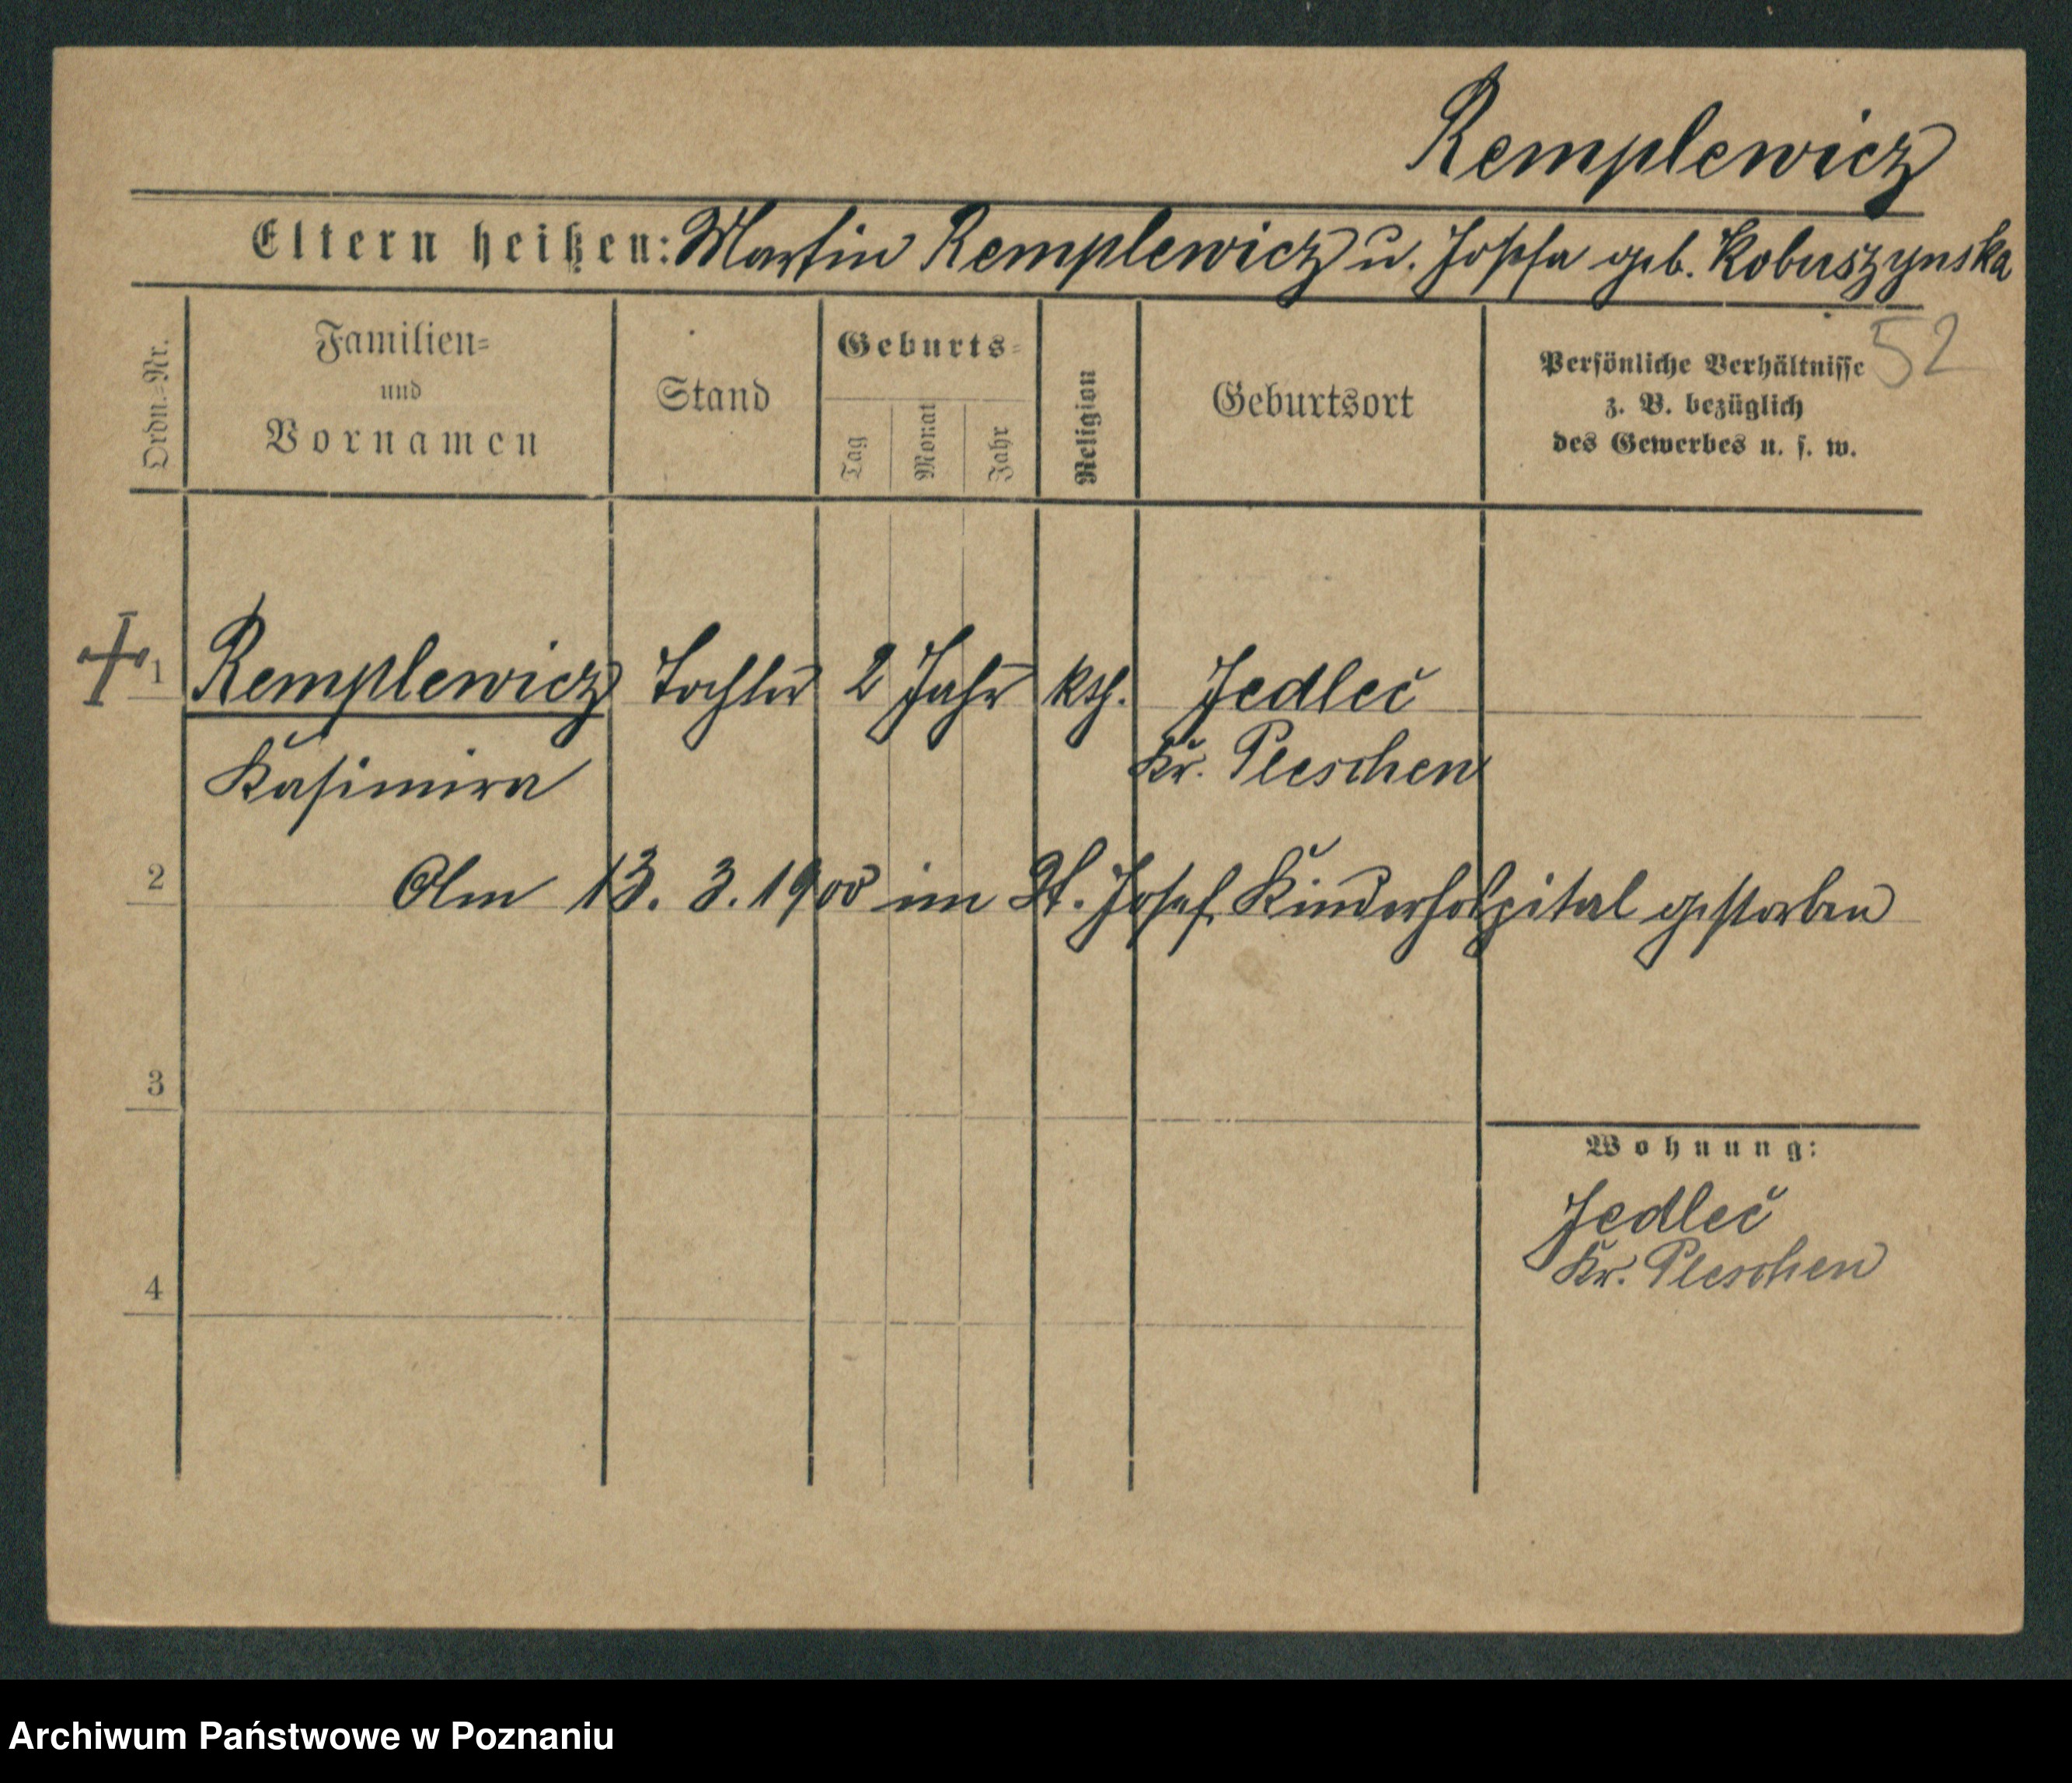 Remplewicz
Eltern heißen: Martin Remplewicz u. Josefa geb. Kobuszynska
52
Ordn.-Nr.
Familien-
und
Vornamen
Stand
Geburts-
Tag
Monat
Jahr
Religion
Geburtsort
Persönliche Verhältnisse
z. B. bezüglich
des Gewerbes u. s. w.
1 Remplewicz Tochter 2 Jahr kth. Jedleč
Kasimira Kr. Pleschen
2 Am 13. 3. 1900 im St. Josef Kinderhospital gestorben
3
Wohnung:
Jedleč
Kr. Pleschen
4
Archiwum Państwowe w Poznaniu